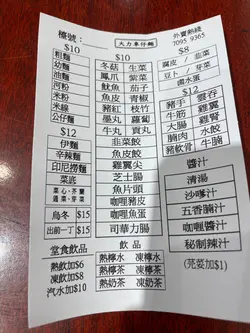 檯號：
大力車仔麵
外賣熱綫
7095 9365
$10
粗麵
幼麵
油麵
河粉
米粉
米線
公仔麵
$12
伊麵
辛辣麵
印尼撈麵
菜底
菜心·芥蘭
通菜·芽菜
烏冬 $15
出前一丁 $15
$10
冬菇 生菜
鳳爪 紫菜
魷魚 茄子
魚皮 青椒
豬紅 枝竹
墨丸 蘿蔔
牛丸 貢丸
韭菜餃
魚皮餃
雞翼尖
芝士腸
魚片頭
咖喱豬皮
咖喱魚蛋
司華力腸
$8
腐皮 / 韭菜
豆卜 / 芽菜
滷水蛋
$12
豬手 雲吞
牛筋 蟹柳
大腸 雞腎
腩肉 水餃
豬軟骨 牛腩
醬汁
清湯
沙嗲汁
五香腩汁
咖喱醬汁
秘制辣汁
(芫荽加$1)
堂食飲品
熱飲加$6
凍飲加$8
汽水加$10
飲品
熱檸水 凍檸水
熱檸茶 凍檸茶
熱奶茶 凍奶茶